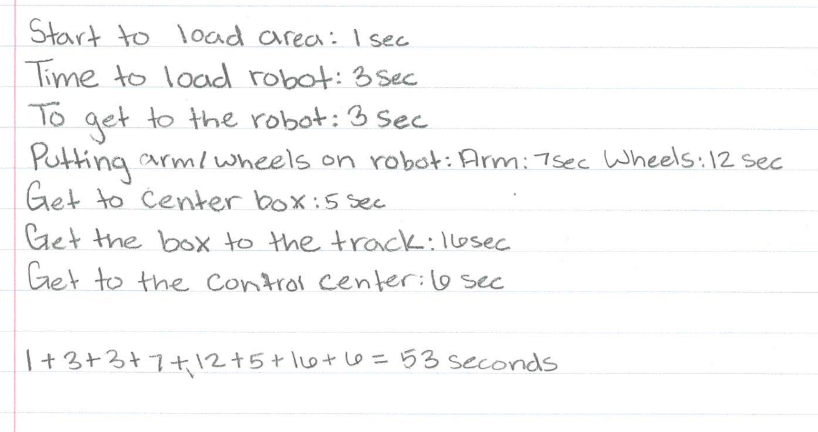 Start to load area: 1 sec
Time to load robot: 3 sec
To get to the robot: 3 sec
Putting arm/wheels on robot: Arm: 7sec Wheels: 12 sec
Get to center box: 5 sec
Get the box to the track: 16sec
Get to the control center: 6 sec
1+3+3+7+12+5+16+6 = 53 seconds